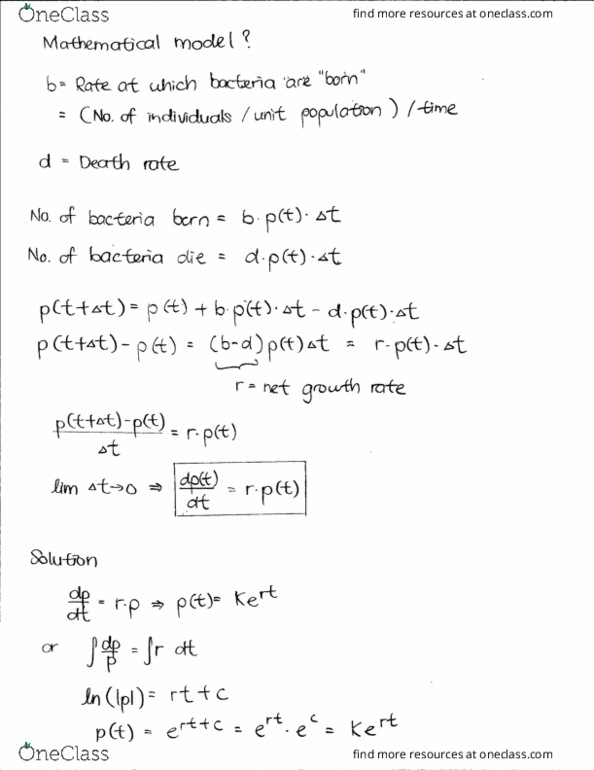 OneClass find more resources at oneclass.com
Mathematical model?
b = Rate at which bacteria are "born"
= (No. of individuals / unit population) / time
d = Death rate
No. of bacteria born = b·p(t)·Δt
No. of bacteria die = d·p(t)·Δt
p(t+Δt) = p(t) + b·p(t)·Δt - d·p(t)·Δt
p(t+Δt) - p(t) = (b-d)p(t)Δt = r·p(t)·Δt
r = net growth rate
p(t+Δt)-p(t)/Δt = r·p(t)
lim Δt→0 ⇒ dp(t)/dt = r·p(t)
Solution
dp/dt = r·p ⇒ p(t) = Ke^rt
or ∫dp/p = ∫r dt
ln(|p|) = rt + c
p(t) = e^rt+c = e^rt · e^c = Ke^rt
OneClass find more resources at oneclass.com